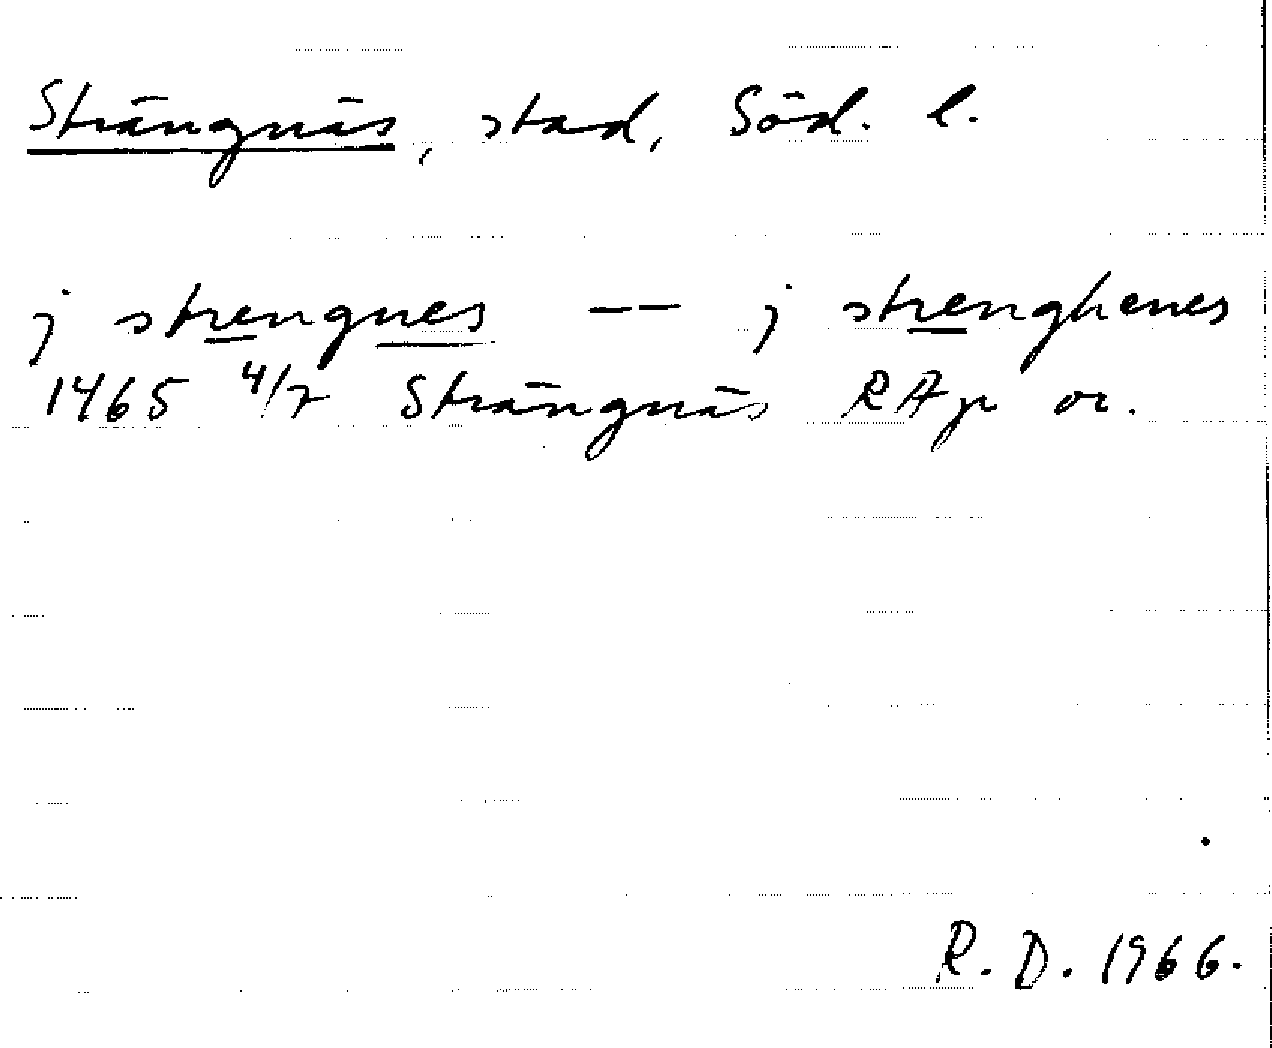 Strängnäs, stad, Söd. l.
j strengnes -- j strenghenes
1465 4/7 Strängnäs RAp or.
R. D. 1966.